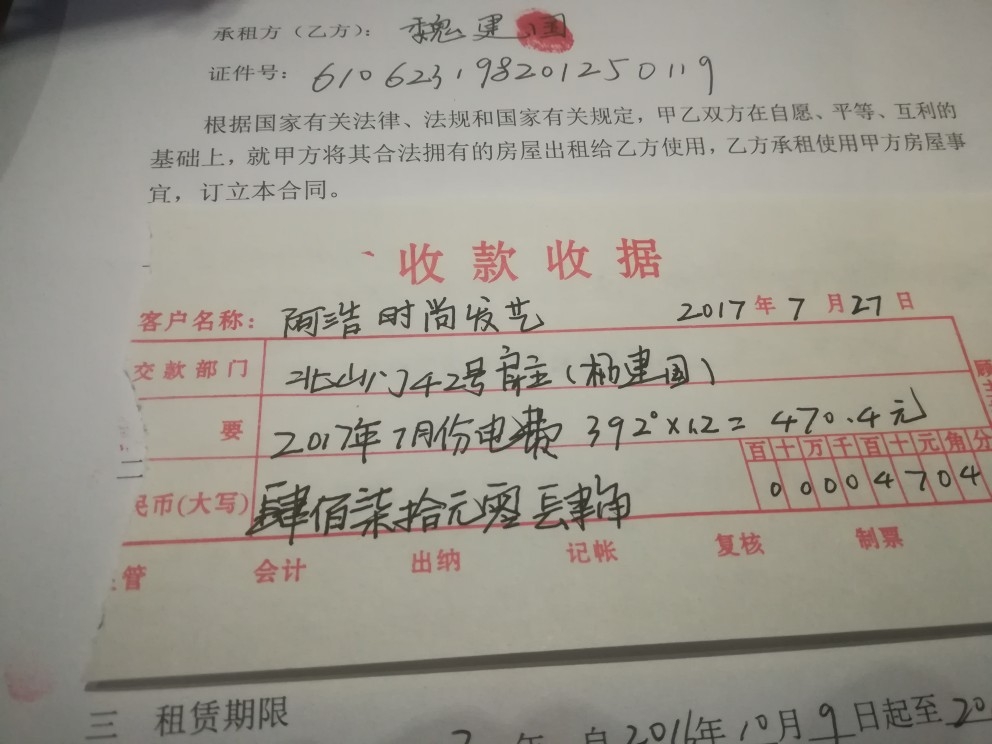 承租方（乙方）： 魏建国
证件号： 610623198201250119
根据国家有关法律、法规和国家有关规定，甲乙双方在自愿、平等、互利的
基础上，就甲方将其合法拥有的房屋出租给乙方使用，乙方承租使用甲方房屋事
宜，订立本合同。
收款收据
客户名称： 阿浩时尚发艺 2017年7月27日
交款部门 北山门42号房主（杨建国）
要 2017年7月份电费 392°×1.2= 470.4元
百十万千百十元角分
民币(大写) 肆佰柒拾元零肆角 00004704
二
管 会计 出纳 记帐 复核 制票
三 租赁期限
年 自2016年10月9日起至20